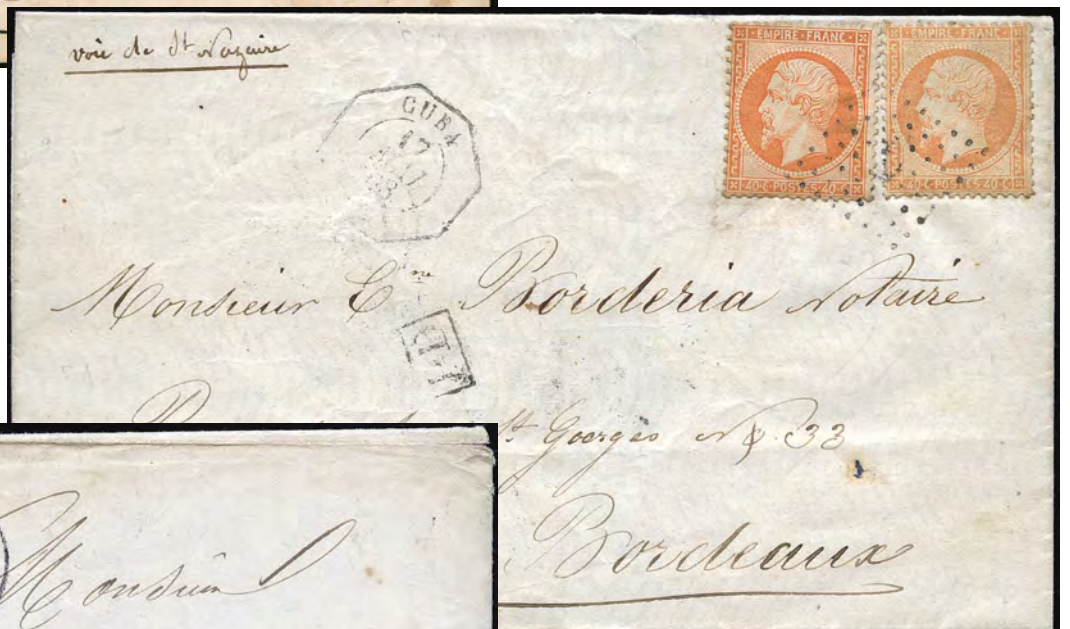 voie de St Nazaire
EMPIRE · FRANC
40·C·POSTES·40·C
EMPIRE · FRANC
40·C·POSTES·40·C
CUBA
17
Monsieur E Borderia Notaire
P.D.
St Goerges No 33
Bordeaux
Monsieur